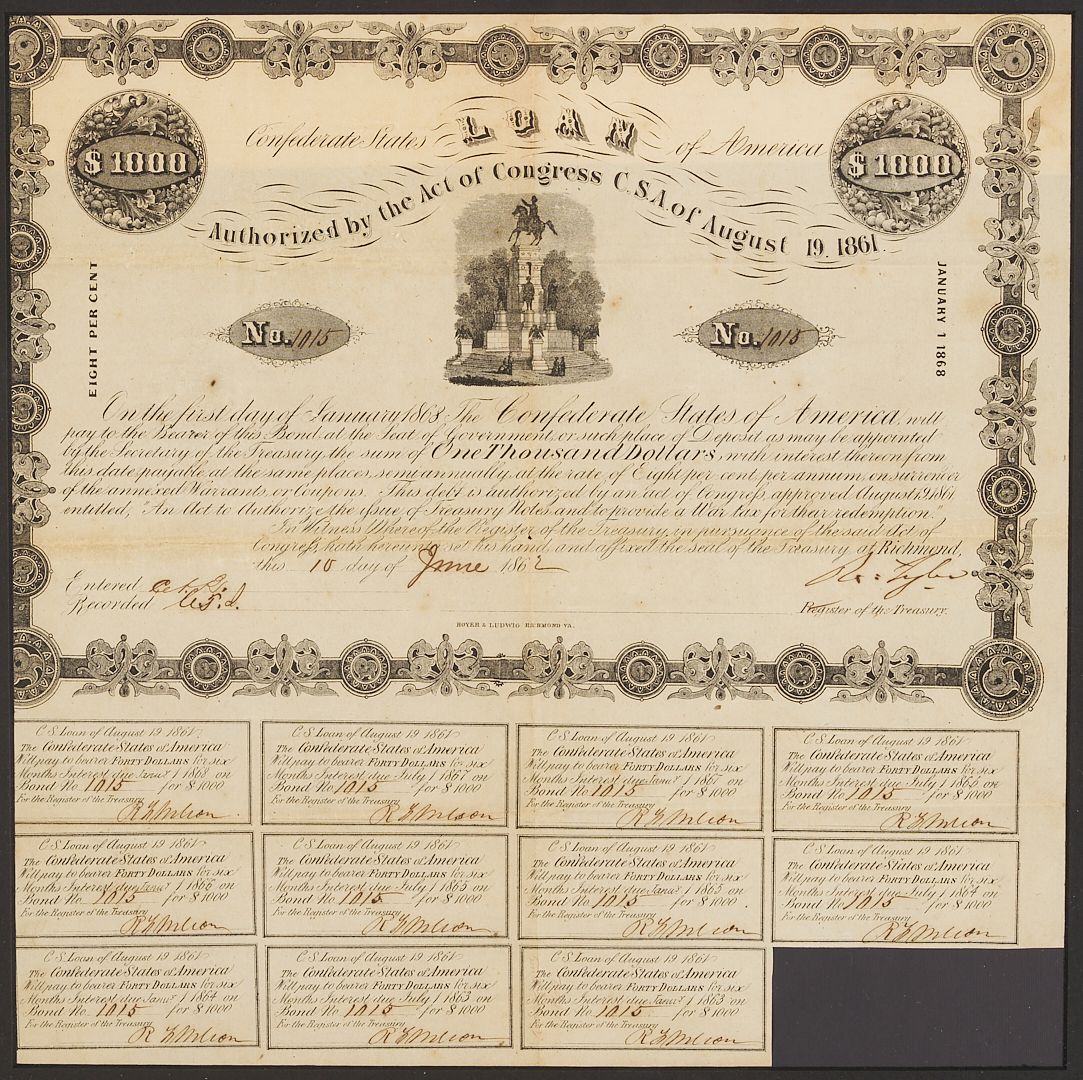 LOAN
Confederate States of America
$1000
$1000
Authorized by the Act of Congress C.S.A. of August 19. 1861.
EIGHT PER CENT
JANUARY 1 1868
No. 1015
No. 1015
On the first day of January 1868 The Confederate States of America, will
pay to the Bearer of this Bond, at the Seat of Government, or such place of Deposit as may be appointed
by the Secretary of the Treasury, the sum of One Thousand Dollars, with interest thereon from
this date, payable at the same places, semi annually, at the rate of Eight per cent per annum, on surrender
of the annexed Warrants, or Coupons. This debt is authorized by an act of Congress, approved August 19, 1861
entitled, "An Act to Authorize the issue of Treasury Notes, and to provide a War tax for their redemption."
In Witness Whereof, the Register of the Treasury, in pursuance of the said Act of
Congress, hath hereunto set his hand, and affixed the seal of the Treasury at Richmond,
this 10 day of June 1862
Entered
Recorded
Ro: Tyler
Register of the Treasury.
HOYER & LUDWIG RICHMOND VA.
C.S. Loan of August 19 1861
The Confederate States of America
Will pay to bearer FORTY DOLLARS for six
Months Interest due Janu.y 1 1868 on
Bond No. 1015 for $1000
For the Register of the Treasury
C.S. Loan of August 19 1861
The Confederate States of America
Will pay to bearer FORTY DOLLARS for six
Months Interest due July 1 1867 on
Bond No. 1015 for $1000
For the Register of the Treasury
C.S. Loan of August 19 1861
The Confederate States of America
Will pay to bearer FORTY DOLLARS for six
Months Interest due Janu.y 1 1867 on
Bond No. 1015 for $1000
For the Register of the Treasury
C.S. Loan of August 19 1861
The Confederate States of America
Will pay to bearer FORTY DOLLARS for six
Months Interest due July 1 1866 on
Bond No. 1015 for $1000
For the Register of the Treasury
C.S. Loan of August 19 1861
The Confederate States of America
Will pay to bearer FORTY DOLLARS for six
Months Interest due Janu.y 1 1866 on
Bond No. 1015 for $1000
For the Register of the Treasury
C.S. Loan of August 19 1861
The Confederate States of America
Will pay to bearer FORTY DOLLARS for six
Months Interest due July 1 1865 on
Bond No. 1015 for $1000
For the Register of the Treasury
C.S. Loan of August 19 1861
The Confederate States of America
Will pay to bearer FORTY DOLLARS for six
Months Interest due Janu.y 1 1865 on
Bond No. 1015 for $1000
For the Register of the Treasury
C.S. Loan of August 19 1861
The Confederate States of America
Will pay to bearer FORTY DOLLARS for six
Months Interest due July 1 1864 on
Bond No. 1015 for $1000
For the Register of the Treasury
C.S. Loan of August 19 1861
The Confederate States of America
Will pay to bearer FORTY DOLLARS for six
Months Interest due Janu.y 1 1864 on
Bond No. 1015 for $1000
For the Register of the Treasury
C.S. Loan of August 19 1861
The Confederate States of America
Will pay to bearer FORTY DOLLARS for six
Months Interest due July 1 1863 on
Bond No. 1015 for $1000
For the Register of the Treasury
C.S. Loan of August 19 1861
The Confederate States of America
Will pay to bearer FORTY DOLLARS for six
Months Interest due Janu.y 1 1863 on
Bond No. 1015 for $1000
For the Register of the Treasury